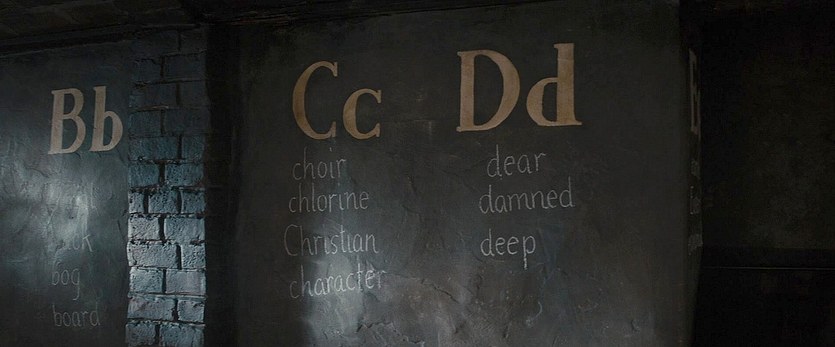 Bb
bog
board
Cc
choir
chlorine
Christian
character
Dd
dear
damned
deep